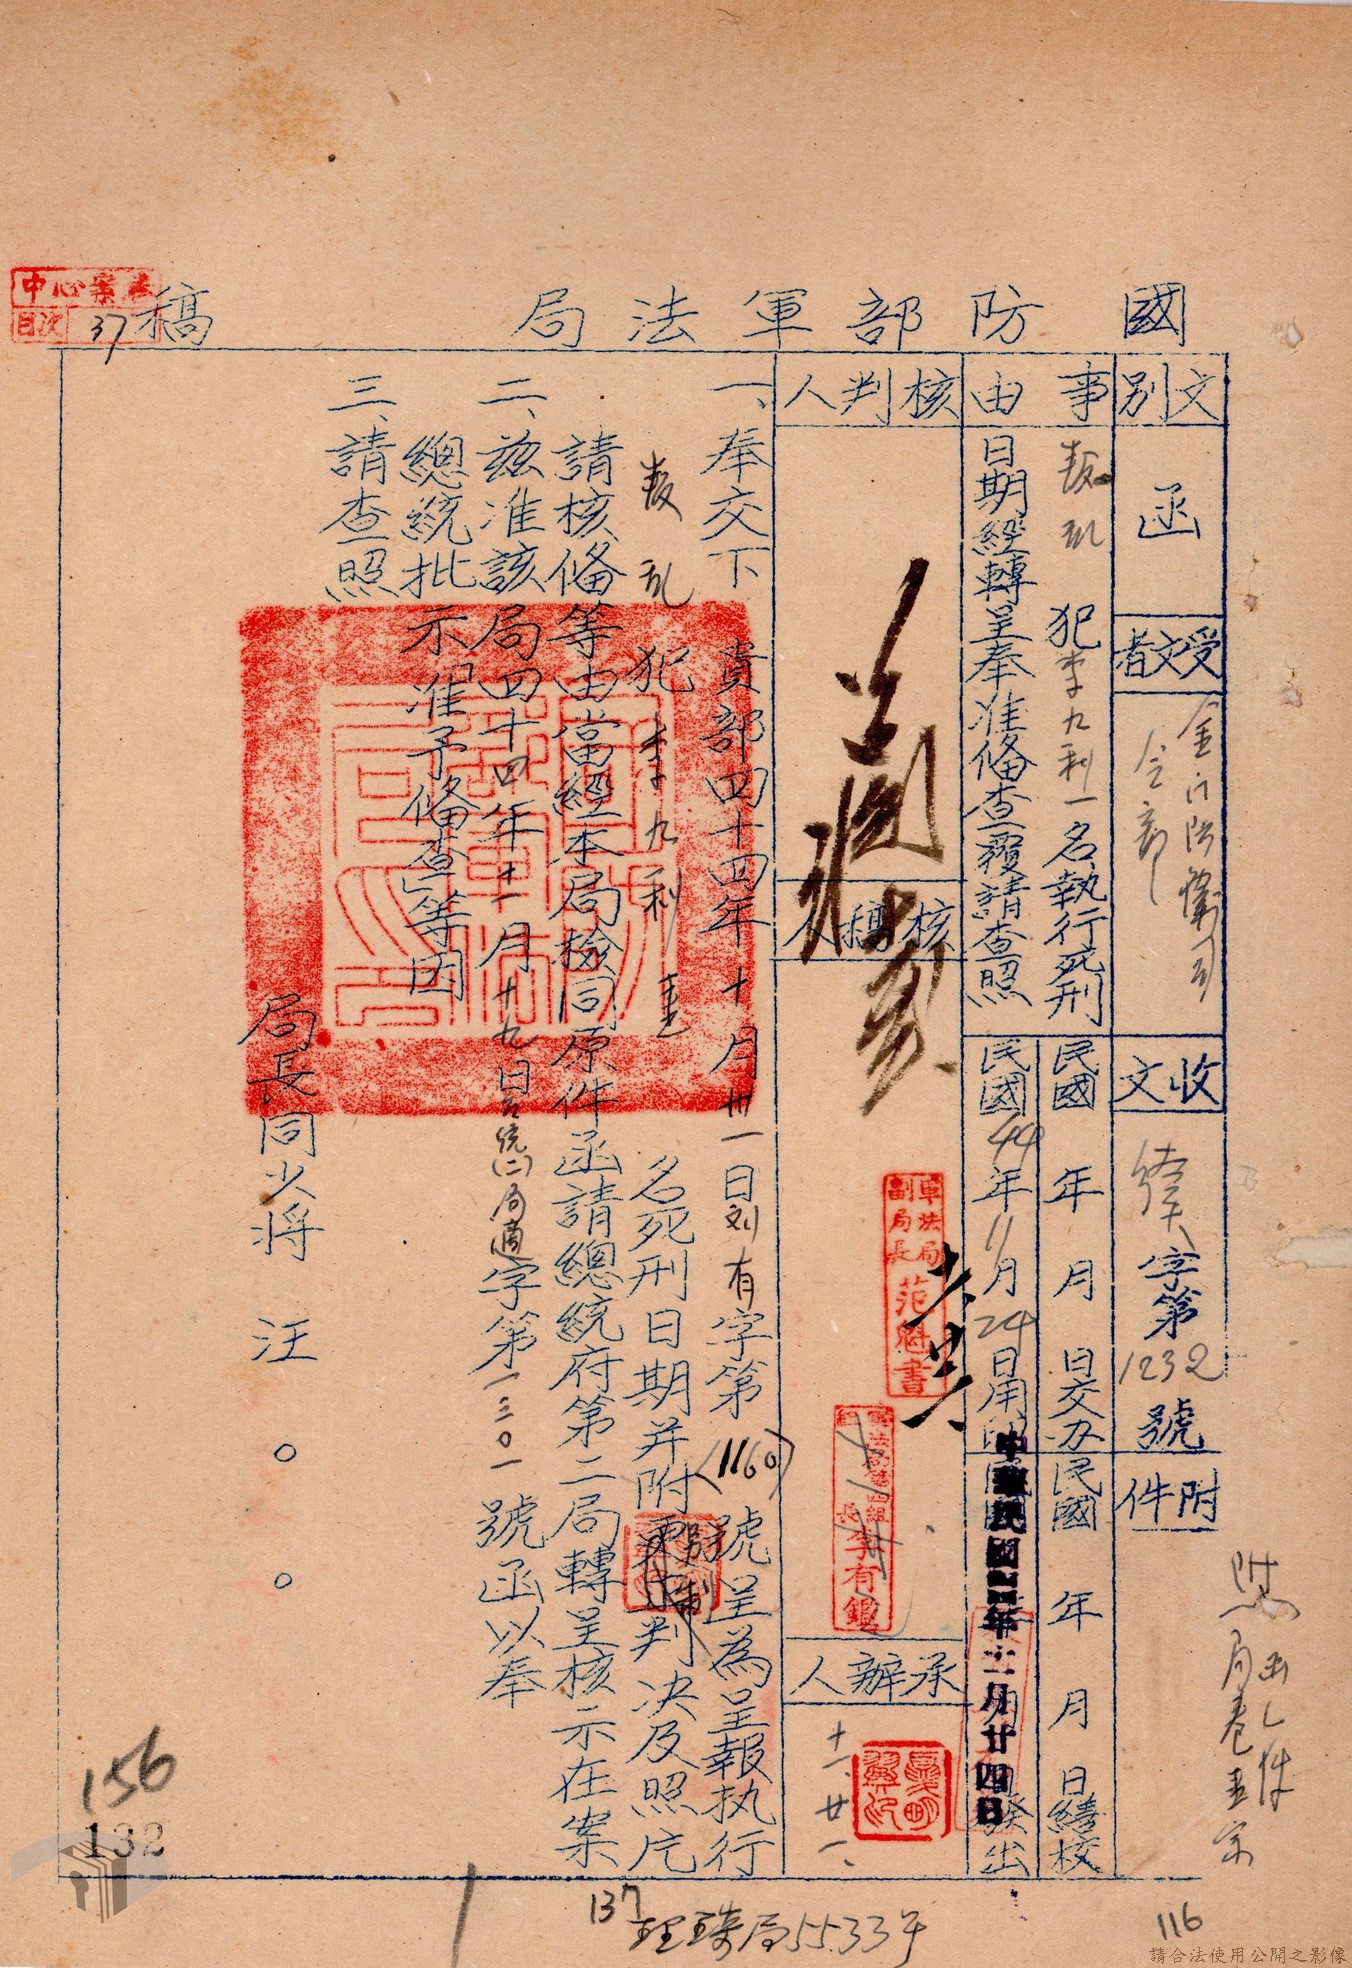 國防部軍法局稿
中心案卷
目次 37
文別
函
受文者
金門防衛司
令部
收文
字第1232號
附件
附函乙件
事由
叛亂犯李九利一名執行死刑
日期經轉呈奉准備查覆請查照
民國 年 月 日交办
民國44年11月24日用印
民國 年 月 日繕校
中華民國四十四年十一月廿四日發出
核判人
核稿人
軍法局
副局長 范魁書
李有鑑
承辦人
十一、廿一、
一、奉交下 貴部四十四年十月卅一日刘有字第(1160)號呈為呈報执行
叛亂犯李九利壹名死刑日期并附判决及照片
請核備等由當經本局檢同原件函請總統府第二局轉呈核示在案
二、茲准該局四十四年十一月十九日台統(二)局適字第一三〇一號函以奉
總統批示「准予備查」等因
三、請查照
局長同少將 汪○○
156
132
137
理琦局5533年
116
請合法使用公開之影像